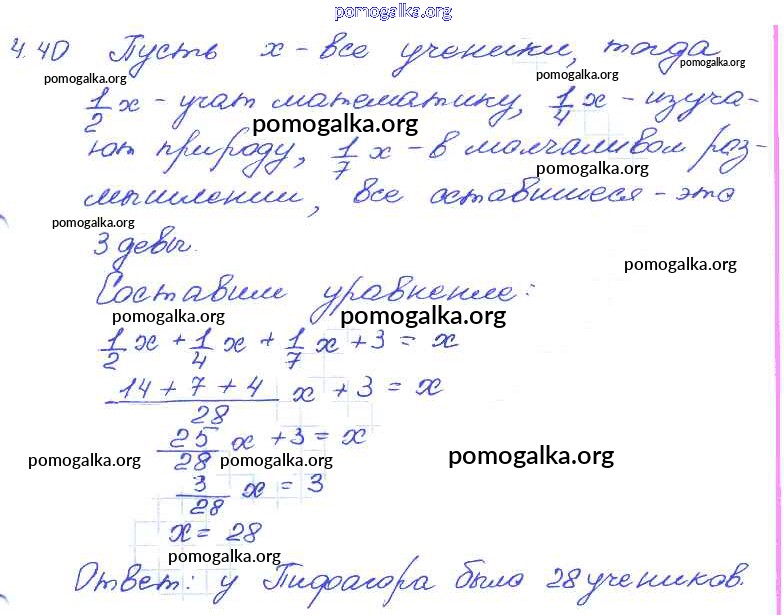 pomogalka.org
4.40 Пусть x - все ученики, тогда
pomogalka.org pomogalka.org pomogalka.org
1/2 x - учат математику, 1/4 x - изуча-
pomogalka.org
ют природу, 1/7 x - в молчаливом раз-
pomogalka.org
мышлении, все оставшиеся - это
pomogalka.org
3 девы.
pomogalka.org
Составим уравнение:
pomogalka.org pomogalka.org
1/2 x + 1/4 x + 1/7 x + 3 = x
(14 + 7 + 4)/28 x + 3 = x
25/28 x + 3 = x
pomogalka.org pomogalka.org pomogalka.org
3/28 x = 3
x = 28
pomogalka.org
Ответ: у Пифагора было 28 учеников.